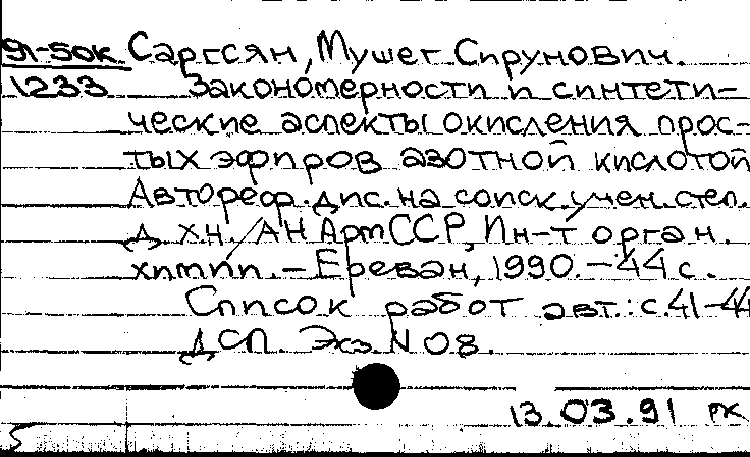 91-50к Саргсян, Мушег Сирунович.
1233 Закономерности и синтети-
ческие аспекты окисления прос-
тых эфиров азотной кислотой
Автореф. дис. на соиск. учен. степ.
д. х.н. / АН АрмССР, Ин-т орган.
химии. – Ереван, 1990. – 44 с.
Список работ авт.: с. 41-44
ДСП. Экз. N 08.
13.03.91 РК
5